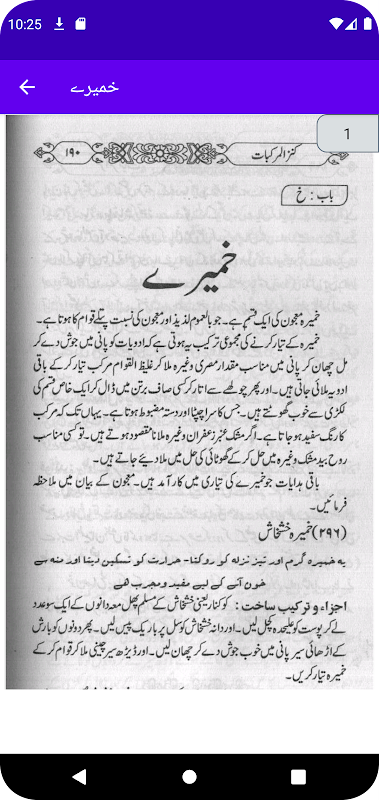 10:25
خمیرے
1
کنز المرکبات
۱۹۰
باب : خ
خمیرے
خمیرہ معجون کی ایک قسم ہے۔ جو بالعموم لذیذ اور معجون کی نسبت پتلے قوام کا ہوتا ہے۔
خمیرہ کے تیار کرنے کی مجموعی ترکیب یہ ہوتی ہے کہ ادویات کو پانی میں جوش دے کر
مل چھان کر پانی میں مناسب مقدار مصری وغیرہ ملا کر غلیظ القوام مرکب تیار کر کے باقی
ادویہ ملائی جاتی ہیں۔ اور پھر چولھے سے اتار کر کسی صاف برتن میں ڈال کر ایک خاص قسم کی
لکڑی سے خوب گھونٹتے ہیں۔ جس کا سرا چپٹا اور دستہ مضبوط ہوتا ہے۔ یہاں تک کہ مرکب
کا رنگ سفید ہو جاتا ہے۔ اگر مشک عنبر زعفران وغیرہ ملانا مقصود ہوتے ہیں۔ تو کسی مناسب
روح بید مشک وغیرہ میں حل کر کے گھوٹائی کی حل میں ملا دیئے جاتے ہیں۔
باقی ہدایات جو خمیرے کی تیاری میں کارآمد ہیں۔ معجون کے بیان میں ملاحظہ
فرمائیں۔
(۲۹۶) خمیرہ خشخاش
یہ خمیرہ گرم اور تیز نزلہ کو روکنا۔ حرارت کو تسکین دیتا اور منہ سے
خون آنے کے لیے مفید و مجرب ہے
اجزاء و ترکیب ساخت : کوکنار یعنی خشخاش کے مسلم پھل معہ دانوں کے ایک سو عدد
لے کر پوست کو علیحدہ کچل لیں۔ اور دانہ خشخاش کو سل پر باریک پیس لیں۔ پھر دونوں کو بارش
کے اڑھائی سیر پانی میں خوب جوش دے کر چھان لیں۔ اور ڈیڑھ سیر چینی ملا کر قوام کر کے
خمیرہ تیار کریں۔